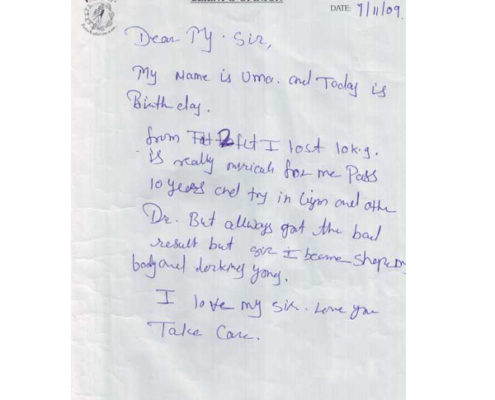 DATE: 7/11/09
Dear My. Sir,
My Name is Uma. and Today is
Birth day.
from 2 I lost 10k.g.
is really miricah for me Pass
10 years and try in Gym and othe
Dr. But allways got the bad
result but sir I became shape my
body and looking yong.
I love my sir. Love you
Take Care.